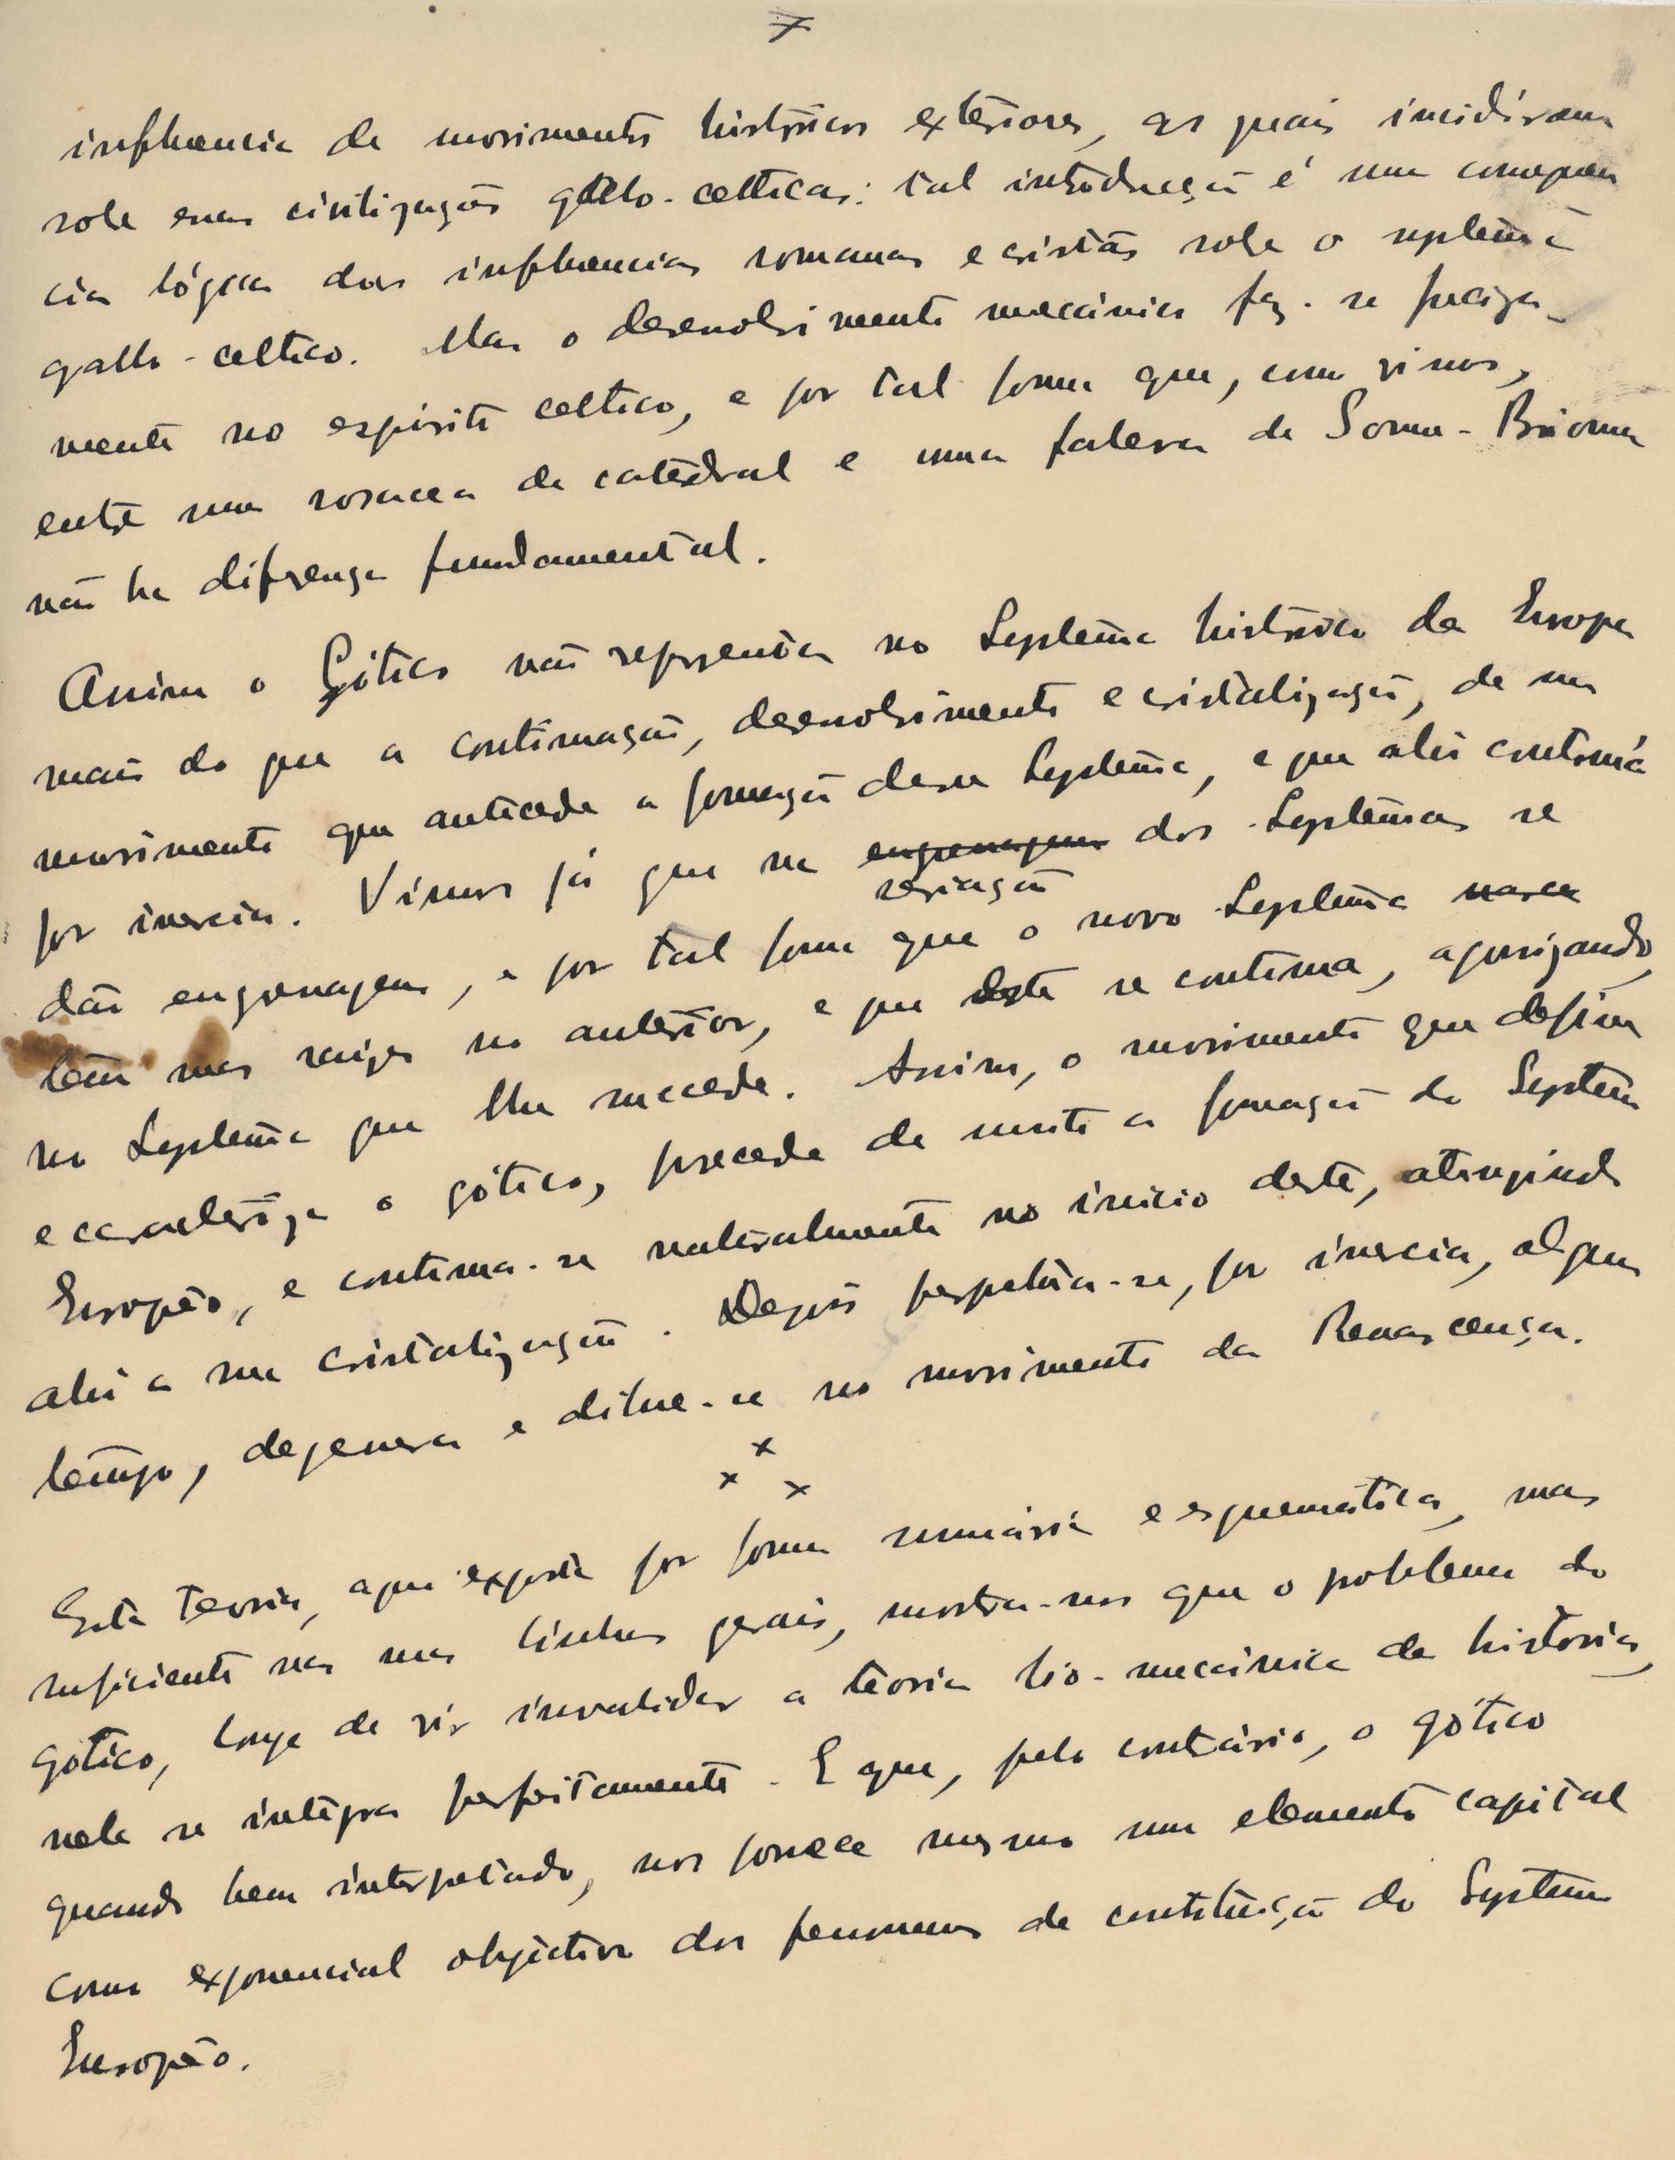 7
influencia de movimentos históricos exteriores, os quais incidiram
sobre essas civilizações gallo-celticas: tal introducção é uma consequen
cia lógica das influencias romanas e cristãs sobre o systema
gallo-celtico. Mas o desenvolvimento mecânico faz-se precisa-
mente no espirito celtico, e por tal forma que, como vimos,
entre uma rosacea de catedral e uma falera de Somme-Bionne
não ha diferença fundamental.
Assim o Gótico não representa no Systema histórico da Europa
mais do que a continuação, desenvolvimento e cristalização, de um
movimento que antecede a formação desse Systema, e que alli continúa
por inercia. Vimos já que na engrenagem dos Systemas se
seriação
dão engrenagens, e por tal forma que o novo Systema nasce
tem suas raizes no anterior, e que este se continua, agonizando,
no Systema que lhe succede. Assim, o movimento que define
e caracteriza o gótico, precede de muito a formação do Systema
Europêo, e continua-se naturalmente no inicio deste, atingindo
alli a sua cristalização. Depois perpetúa-se, por inercia, algum
tempo, degenera e dilue-se no movimento da Renascença.
x
x x
Esta teoria, aqui exposta por forma sumária e esquemática, mas
suficiente nas suas linhas gerais, mostra-nos que o problema do
gótico, longe de vir invalidar a teoria bio-mecânica da história,
nela se integra perfeitamente. E que, pelo contrário, o gótico
quando bem interpretado, nos fornece mesmo um elemento capital
como exponencial objectivo dos fenomenos de constituição do Systema
Europêo.